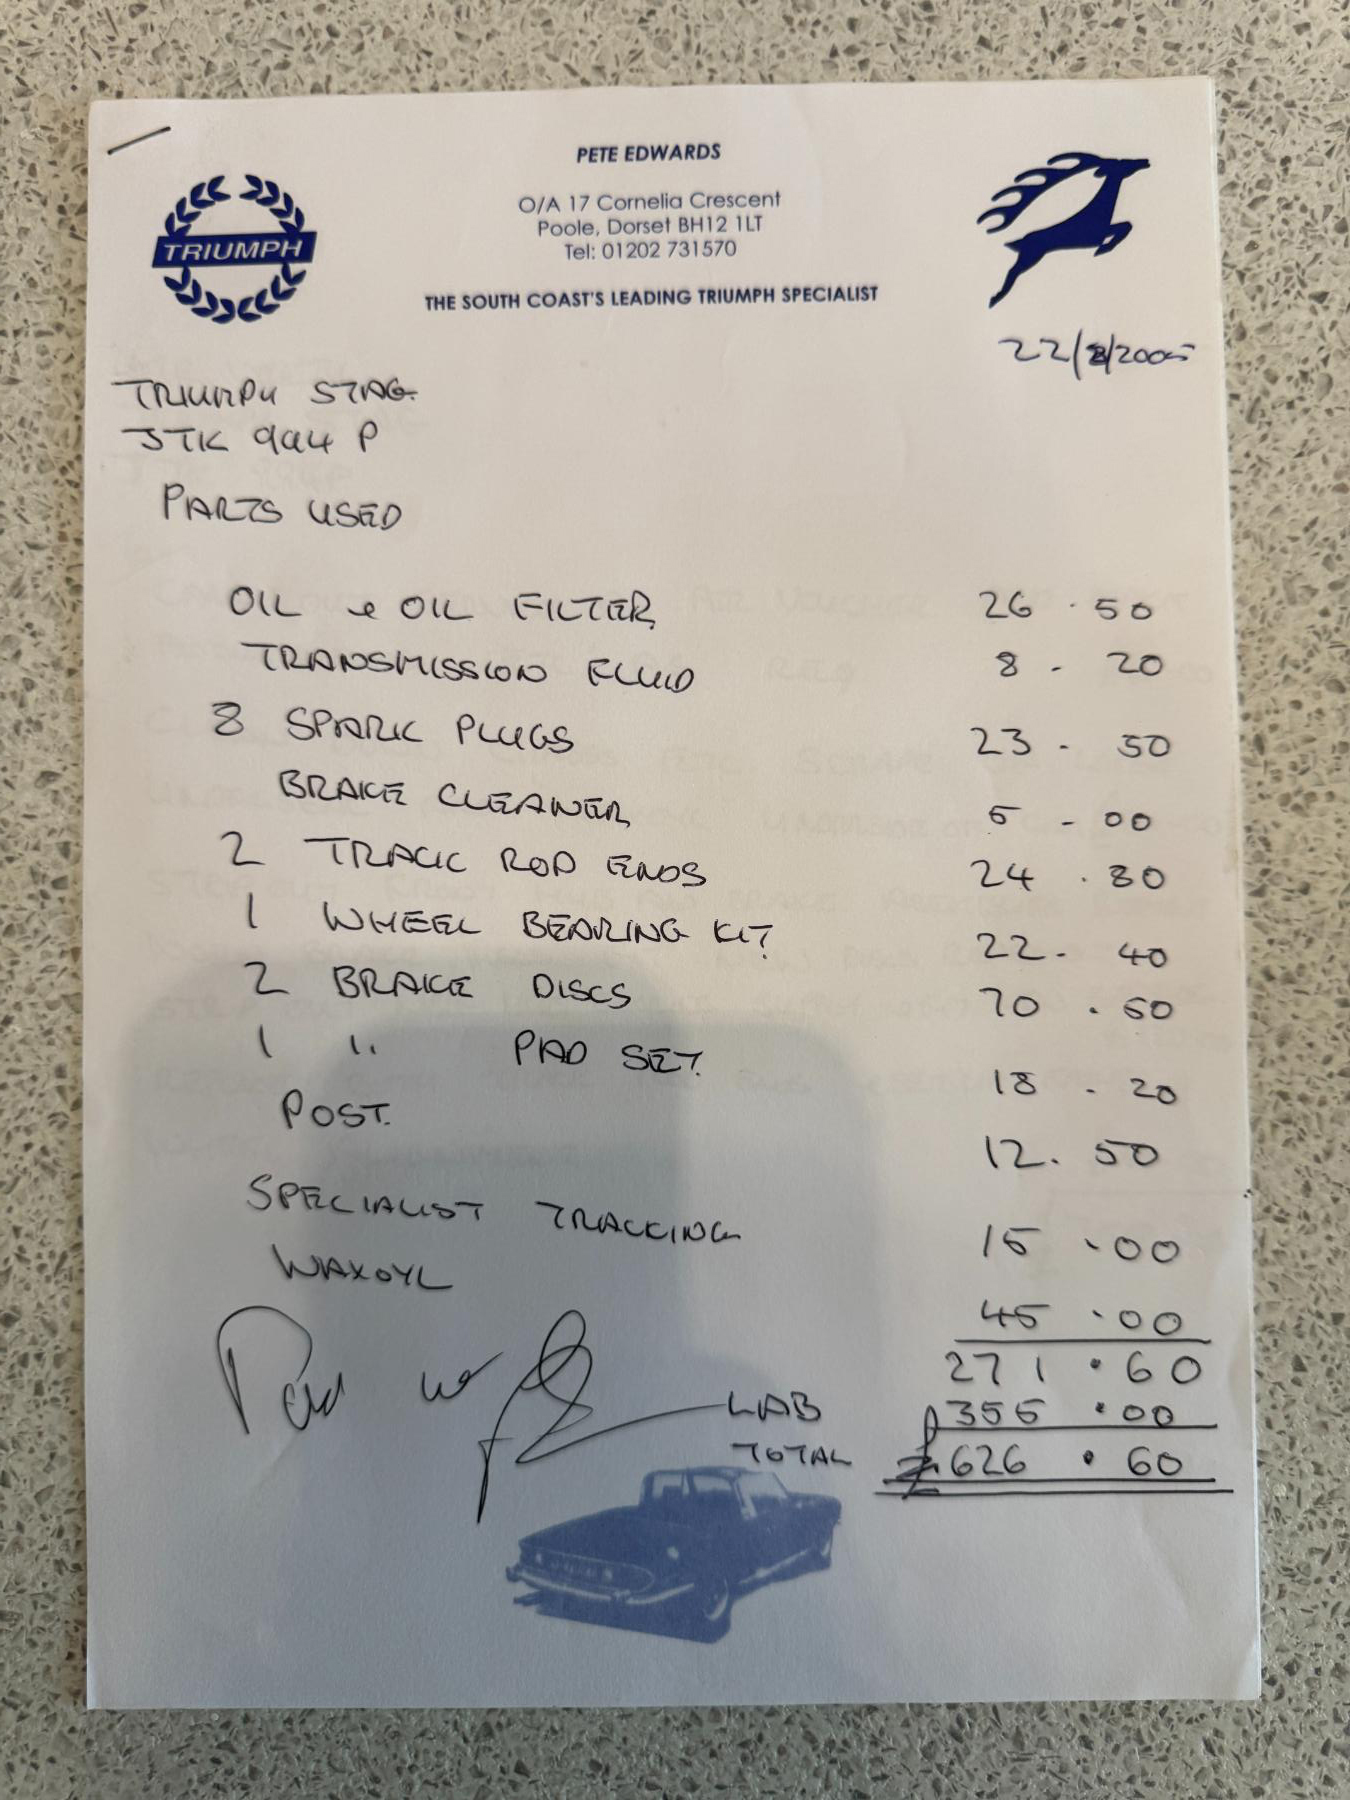 PETE EDWARDS
O/A 17 Cornelia Crescent
Poole, Dorset BH12 1LT
Tel: 01202 731570
TRIUMPH
THE SOUTH COAST'S LEADING TRIUMPH SPECIALIST
22/8/2005
TRIUMPH STAG
JTK 994 P
PARTS USED
OIL & OIL FILTER 26.50
TRANSMISSION FLUID 8-20
8 SPARK PLUGS 23-50
BRAKE CLEANER 5-00
2 TRACK ROD ENDS 24.80
1 WHEEL BEARING KIT 22-40
2 BRAKE DISCS 70.50
1 " PAD SET 18-20
POST 12.50
SPECIALIST TRACKING 15.00
WAXOYL 45.00
271.60
Paid LAB 355.00
TOTAL £626.60